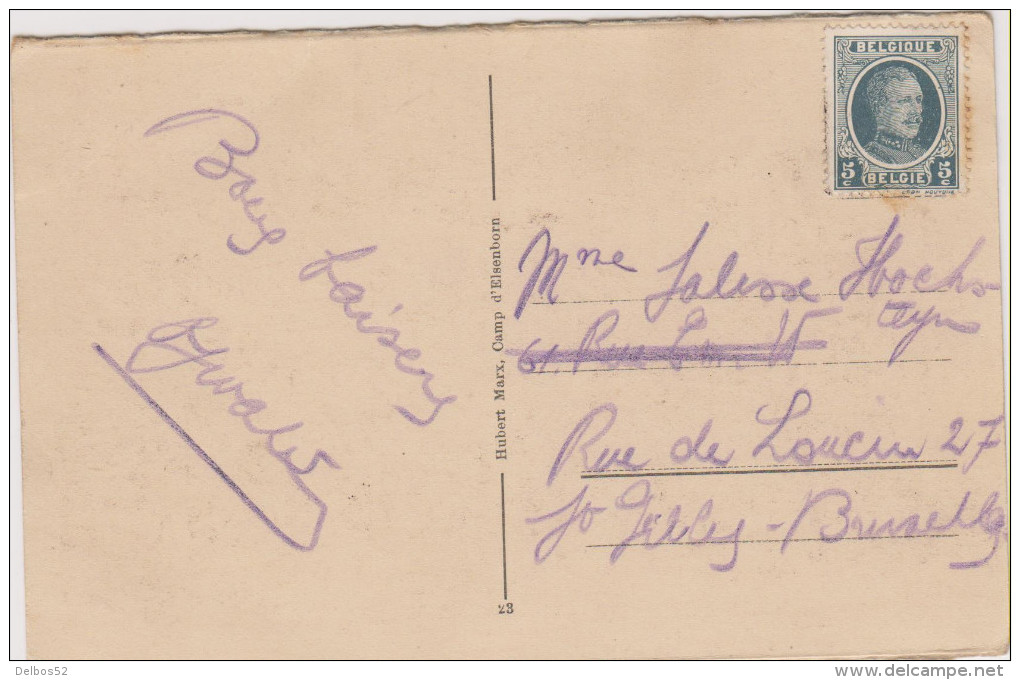 BELGIQUE
5c 5c
BELGIE
Bons baisers
Hubert Marx, Camp d'Elsenborn
23
Mme Hochs-
61, Rue
Rue de 27
St Gilles - Bruxelles
Delbos52
www.delcampe.net